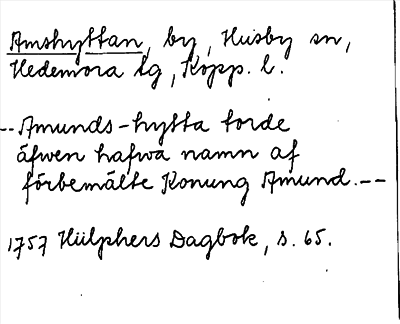 Amshyttan, by, Husby sn,
Hedemora tg, Kopp. l.
-- Amunds-hytta torde
äfwen hafwa namn af
förbemälte Konung Amund. --
1757 Hülphers Dagbok, s. 65.